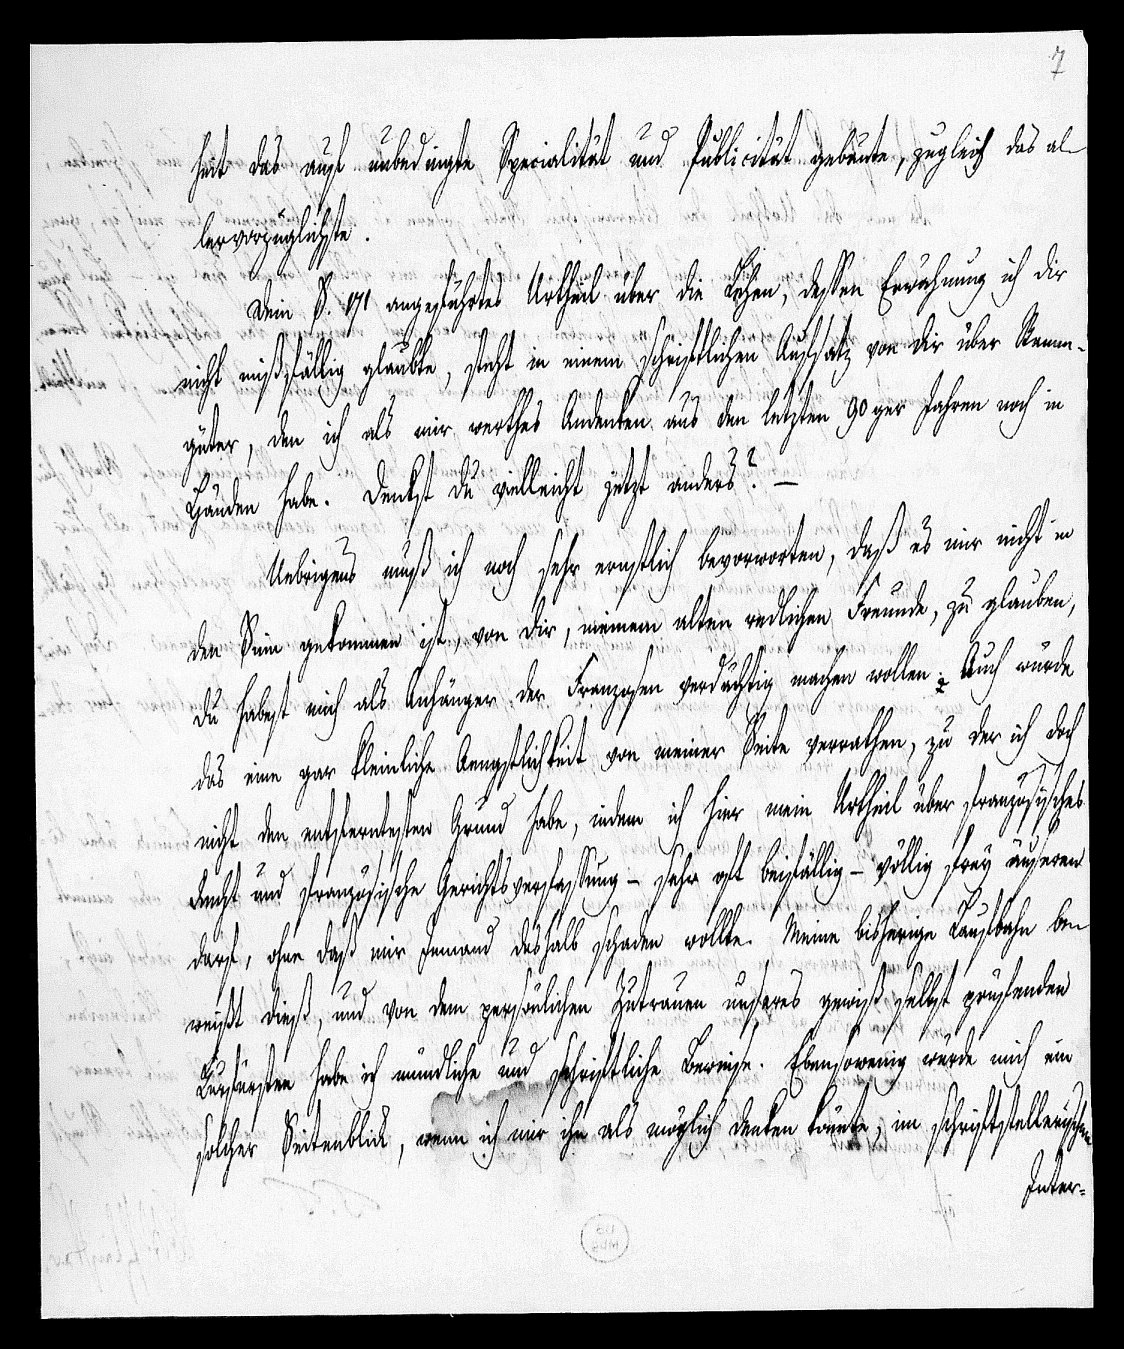 7
heit das auf unbedingte Specialität und Publicität gebaute, zugleich das al-
lervorzüglichste.
Dein S. 171 angeführtes Urtheil über die Lehen, dessen Erwähnung ich dir
nicht mißfällig glaubte, steht in einem schriftlichen Aufsatz von dir über Stamm-
güter, den ich als mir werthes Andenken aus den letzten 90ger Jahren noch in
Händen habe. Denkst du vielleicht jetzt anders? —
Uebrigens muß ich noch sehr ernstlich bevorworten, daß es mir nicht in
den Sinn gekommen ist, von dir, meinem alten redlichen Freunde, zu glauben,
du habest mich als Anhänger der Franzosen verdächtig machen wollen. Auch würde
das eine gar kleinliche Aengstlichkeit von meiner Seite verrathen, zu der ich doch
nicht den entferntesten Grund habe, indem ich hier mein Urtheil über französisches
Recht und französische Gerichtsverfassung – sehr oft beifällig – völlig frey äusseren
darf, ohne daß mir Jemand deshalb schaden wollte. Meine bisherige Laufbahn be-
weißt dieß, und von dem persönlichen Zutrauen unseres gewiß selbst prüfenden
Kurfürsten habe ich mündliche und schriftliche Beweise. Ebensowenig würde mich ein
solcher Seitenblick, wenn ich mir ihn als möglich denken könnte, im schriftstellerischen
Inter-